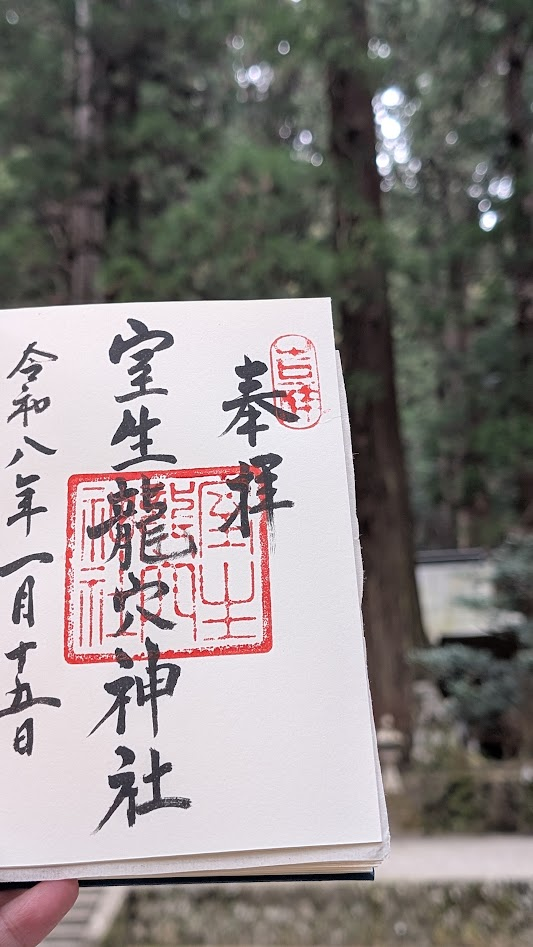 吉祥
奉拝
室生龍穴神社
室生
龍穴
神社
令和八年一月十五日